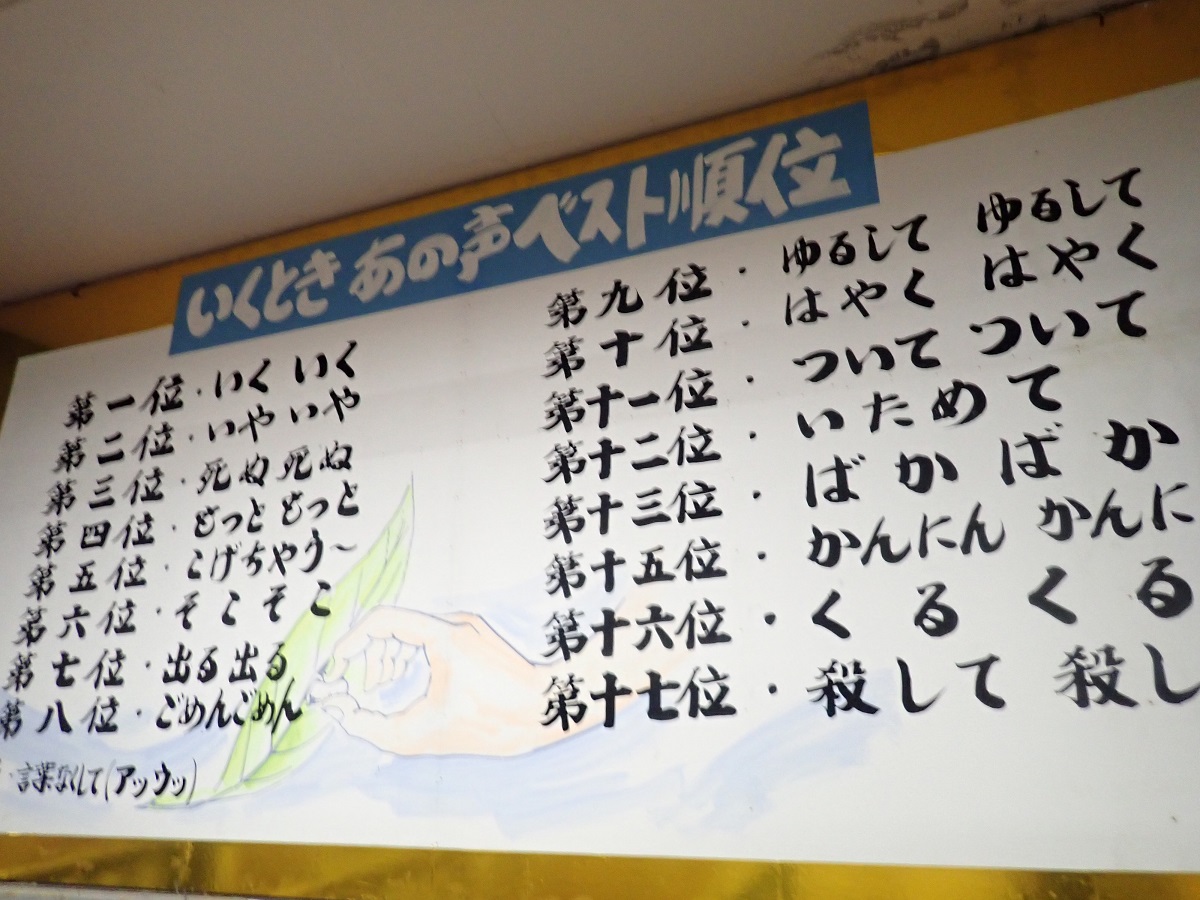 いくときあの声ベスト順位
第一位・いく いく
第二位・いや いや
第三位・死ぬ 死ぬ
第四位・もっと もっと
第五位・こげちやう～
第六位・そこ そこ
第七位・出る 出る
第八位・ごめんごめん
・言葉なくして(アッウッ)
第九位・ゆるして ゆるして
第十位・はやく はやく
第十一位・ついて ついて
第十二位・いためて
第十三位・ばか ばか
第十五位・かんにん かんに
第十六位・くる くる
第十七位・殺して 殺し